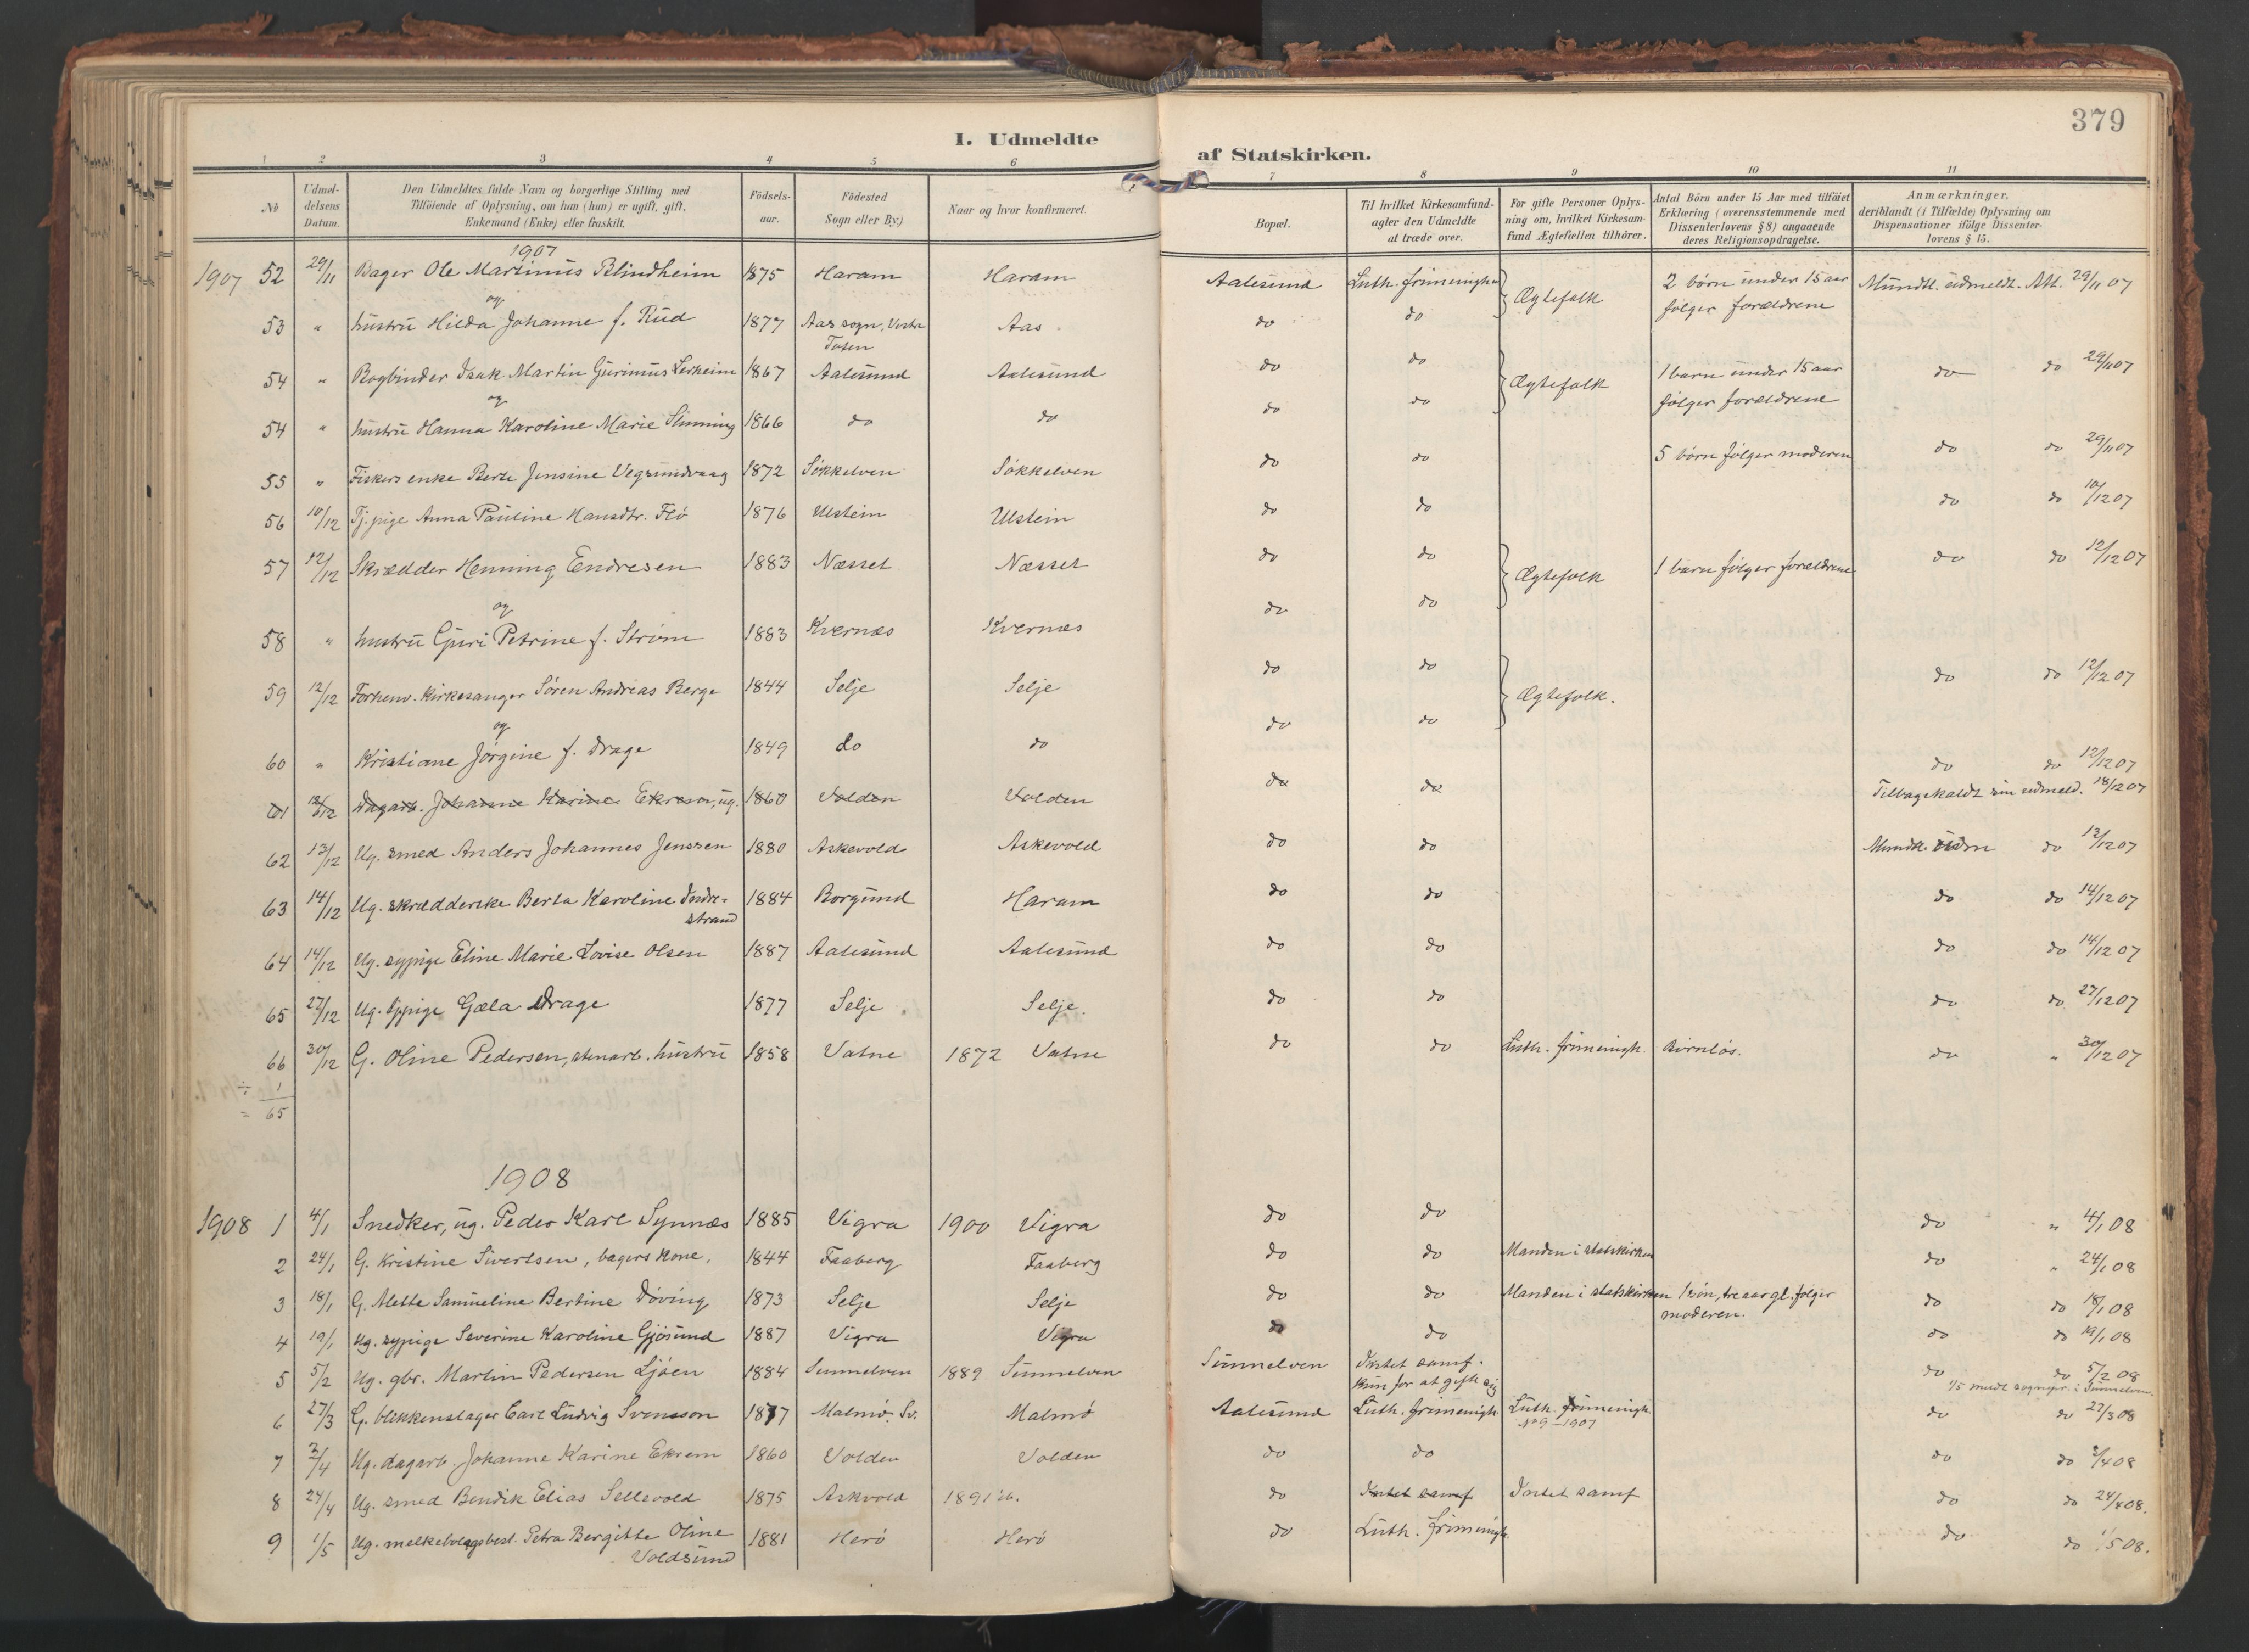 379
I. Udmeldte af Statskirken.
1 2 3 4 5 6 7 8 9 10 11
No
Udmeldelsens Datum.
Den Udmeldtes fulde Navn og borgerlige Stilling med Tilföiende af Oplysning, om han (hun) er ugift, gift, Enkemand (Enke) eller fraskilt.
Födselsaar.
Födested Sogn eller By.)
Naar og hvor konfirmeret.
Bopæl.
Til hvilket Kirkesamfund agter den Udmeldte at træde over.
For gifte Personer Oplysning om, hvilket Kirkesamfund Ægtefællen tilhörer.
Antal Börn under 15 Aar med tilföiet Erklæring (overensstemmende med Dissenterlovens § 8) angaaende deres Religionsopdragelse.
Anmærkninger, deriblandt (i Tilfælde) Oplysning om Dispensationer ifölge Dissenterlovens § 15.
1907
1907 52 29/11 Bager Ole Martinus Blindheim 1875 Haram Haram Aalesund Luth. frimenigh. Ægtefolk 2 börn under 15 aar følger forældrene Mundtl. udmeldt. Att. 29/11 07
og
53 " hustru Hilda Johanne f. Rud 1877 Aas sogn, Vestre Toten Aas do do
54 " Bogbinder Isak Martin Gurinius Lerheim 1867 Aalesund Aalesund do do Ægtefolk 1 barn under 15 aar følger forældrene do do 29/11 07
og
54 " hustru Hanna Karoline Marie Slinning 1866 do do do do
55 " Fiskers enke Berte Jensine Vegsundvaag 1872 Søkkelven Søkkelven do do 5 børn følger moderen do do 29/11 07
56 10/12 Tj. pige Anna Pauline Hansdtr. Flø 1876 Ulstein Ulstein do do do do 10/12 07
57 12/12 Skrædder Henning Endresen 1883 Næsset Næsset do do Ægtefolk 1 barn følger forældrene do do 12/12 07
og
58 " hustru Guri Petrine f. Strøm 1883 Kvernæs Kvernæs do do
59 12/12 Forhenv. Kirkesanger Sören Andreas Berge 1844 Selje Selje do do Ægtefolk. do do 12/12 07
og
60 " Kristiane Jørgine f. Drage 1849 do do do do do do 12/12 07
61 12/12 Dagarb. Johanne Karine Ekrem, ug. 1860 Volden Volden do do Tilbagekaldt sin udmeld. 18/12 07
62 13/12 Ug. smed Anders Johannes Jenssen 1880 Askevold Askevold do do Mundtl. do 13/12 07
63 14/12 Ug. skrædderske Berta Karoline Indrestrand 1884 Borgund Haram do do do do 14/12 07
64 14/12 Ug. sypige Eline Marie Lovise Olsen 1887 Aalesund Aalesund do do do do 14/12 07
65 27/12 Ug. sypige Gæla Drage 1877 Selje Selje. do do do do 27/12 07
66 30/12 G. Oline Pedersen, stenarb. hustru 1858 Vatne 1872 Vatne do do Luth. frimenigh. Barnløs. do " 30/12 07
÷ 1
= 65
1908
1908 1 4/1 Snedker, ug. Peder Karl Synnæs 1885 Vigra 1900 Vigra do do do " 4/1 08
2 24/1 G. Kristine Sivertsen, bagers kone. 1844 Faaberg Faaberg do do Manden i statskirken do " 24/1 08
3 18/1 G. Alette Samueline Bertine Døving 1873 Selje Selje do do Manden i statskirken 1 søn, tre aar gl. følger moderen. do do 18/1 08
4 19/1 Ug. sypige Severine Karoline Gjøsund 1887 Vigra Vigra do do do do 19/1 08
5 5/2 Ug. gbr. Martin Pedersen Ljøen 1884 Sunnelven 1889 Sunnelven Sunnelven Intet samf. Kun for at gifte sig do do 5/2 08
1/5 medt sognepr. i Sunnelven.
6 27/3 G. blikkenslager Carl Ludvig Svensson 1877 Malmö. Sv. Malmö Aalesund Luth. frimenigh Luth. frimenigh. No 9 - 1907 do do 27/3 08
7 2/4 Ug. dagarb. Johanne Karine Ekrem 1860 Volden Volden do do do do 2/4 08
8 24/4 Ug. smed Bendik Elias Sellevold 1875 Askvold 1891 ib. do Intet samf Intet samf do do 24/4 08.
9 1/5 Ug. melkebolagsbest. Petra Bergitte Oline Voldsund 1881 Herö Herö do Luth. frimenigh. do do 1/5 08.